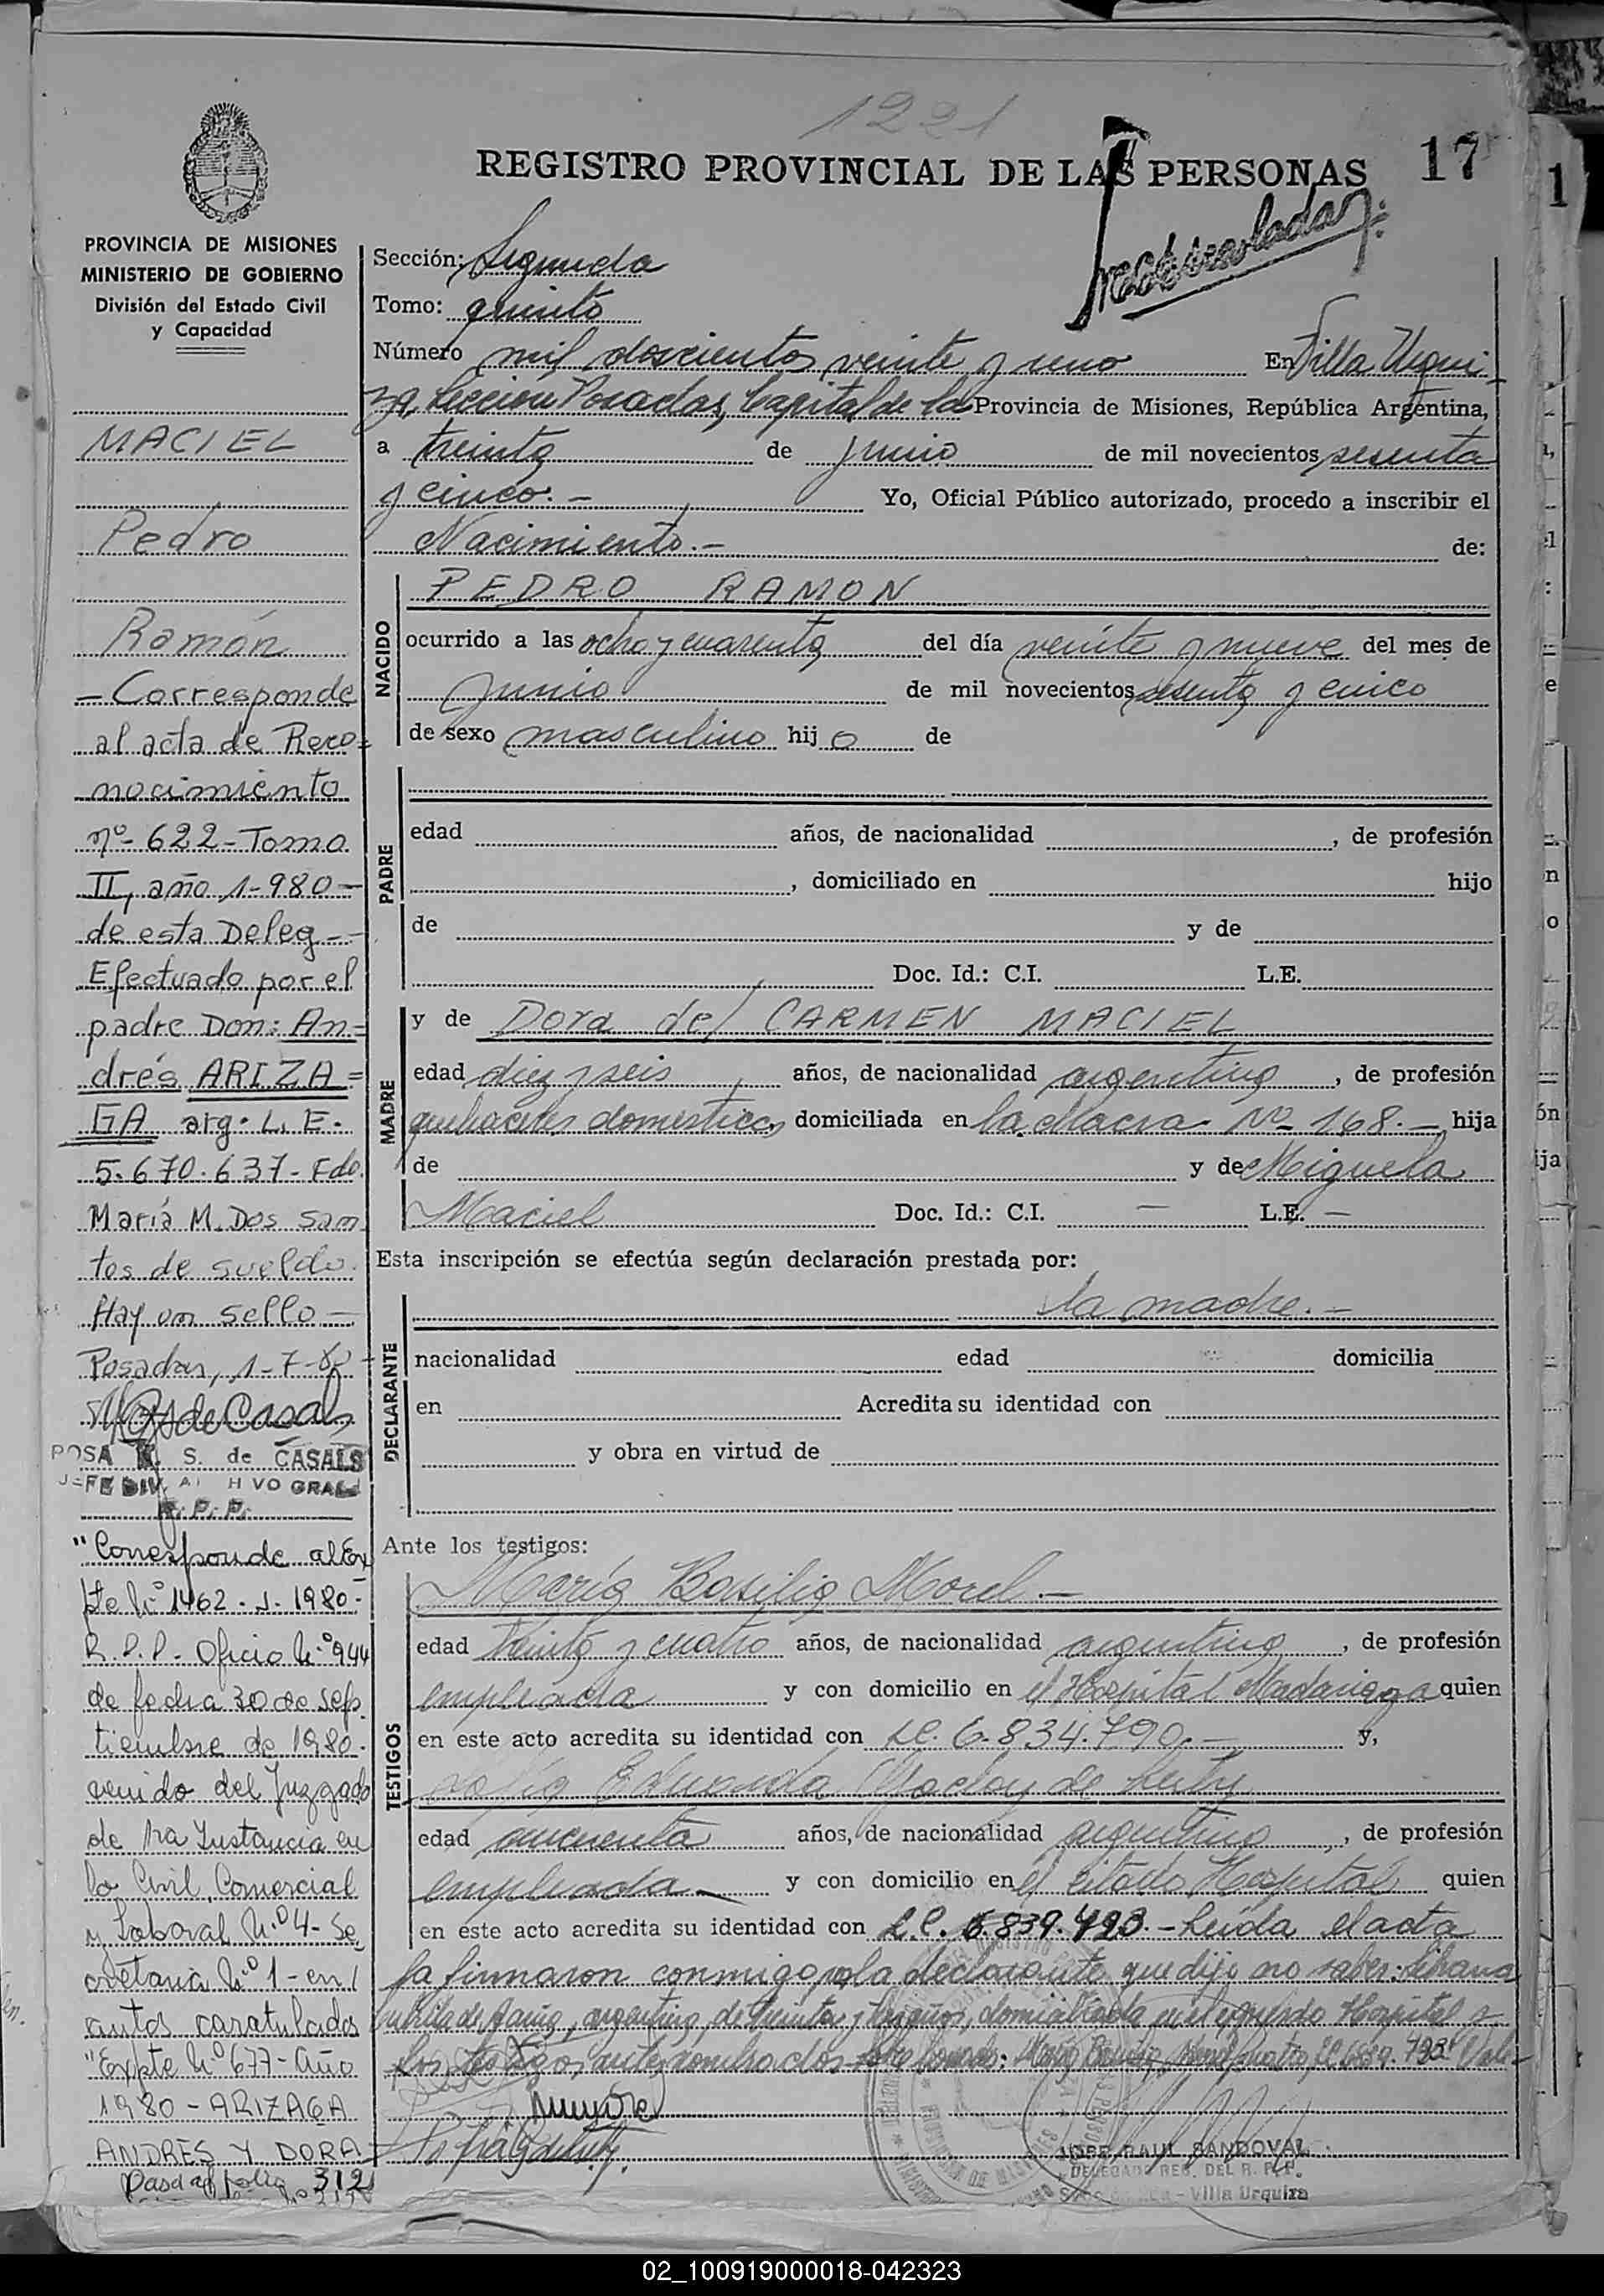 1221
REGISTRO PROVINCIAL DE LAS PERSONAS
17
PROVINCIA DE MISIONES
MINISTERIO DE GOBIERNO
División del Estado Civil
y Capacidad
MACIEL
Pedro
Ramón
- Corresponde
al acta de Reco=
nocimiento
nº 622 - Tomo
II, año 1-980-
de esta Deleg-
Efectuado por el
padre Don: An=
drés ARIZA=
GA arg. L.E.
5.670.637- Fdo.
María M. Dos San
tos de Sueldo.
Hay un sello -
Posadas, 1-7-80
S. de CASALS
"Corresponde al Ex
pte Nº 1462. J. 1980.-
R.P.P. - Oficio Nº 944
de fecha 30 de sep
tiembre de 1980.
venido del Juzgado
de 1ra Instancia en
lo Civil, Comercial
y Laboral N.º 4 - Se
cretaria N.º 1 - en
autos caratulados
"Expte Nº 677 - Año
1980 - ARIZAGA
ANDRES Y DORA
Pasa al folio 312
Sección: Segunda
Tomo: quinto
Número mil doscientos veinte y uno En Villa Urqui-
za, Sección Posadas, Capital de la Provincia de Misiones, República Argentina,
a treinta de junio de mil novecientos sesenta
y cinco.- Yo, Oficial Público autorizado, procedo a inscribir el
Nacimiento.- de:
NACIDO
PEDRO RAMON
ocurrido a las ocho y cuarenta del día veinte y nueve del mes de
Junio de mil novecientos sesenta y cinco
de sexo masculino hijo de
PADRE
edad años, de nacionalidad , de profesión
, domiciliado en hijo
de y de
Doc. Id.: C.I. L.E.
MADRE
y de Dora del CARMEN MACIEL
edad diez y seis años, de nacionalidad argentina, de profesión
quehaceres domesticos domiciliada en la chacra Nº 168.- hija
de y de Miguela
Maciel Doc. Id.: C.I. - L.E. -
Esta inscripción se efectúa según declaración prestada por:
DECLARANTE
la madre.-
nacionalidad edad domicilia
en Acredita su identidad con
y obra en virtud de
Ante los testigos:
TESTIGOS
María Basilia Morel.-
edad treinta y cuatro años, de nacionalidad argentina, de profesión
empleada y con domicilio en el Hospital Madariaga quien
en este acto acredita su identidad con L.C. 6.834.790.- y,
Eduarda de
edad cincuenta años, de nacionalidad argentina, de profesión
empleada y con domicilio en el citado Hospital quien
en este acto acredita su identidad con L.C. 6.839.793.- Leída el acta
la firmaron conmigo, la declarante que dijo no saber:
de argentina, de treinta y años, domiciliada en el Hospital y
los testigos antes nombrados
JOSE RAUL SANDOVAL
DELEGADO REG. DEL R.P.P.
Villa Urquiza
02_100919000018-042323